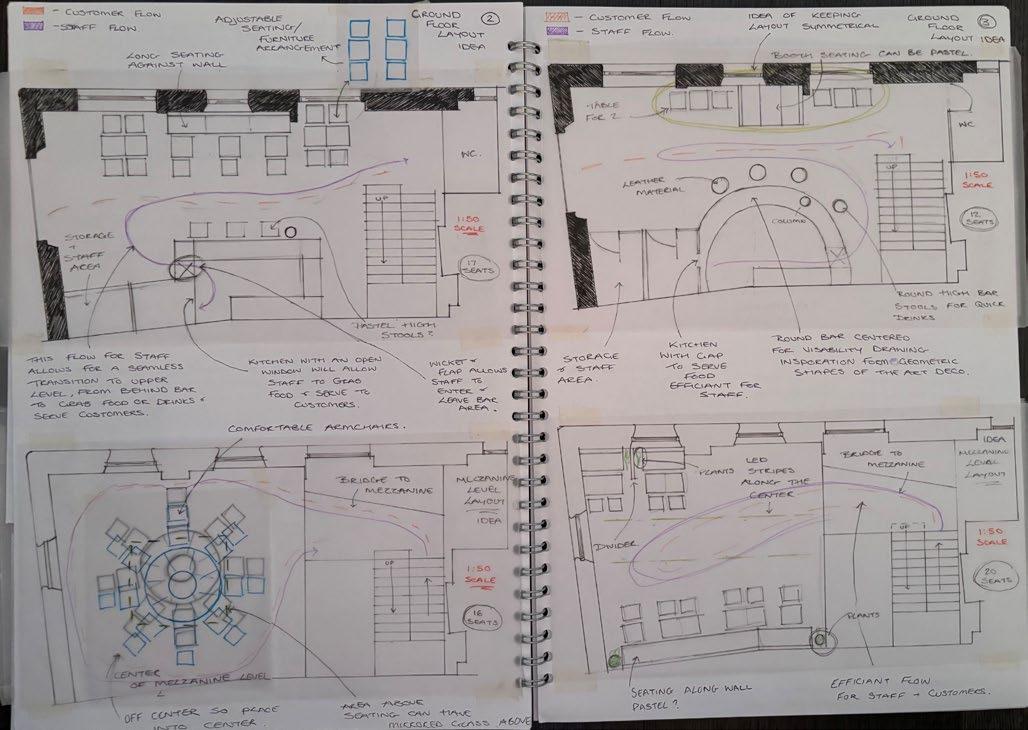 - CUSTOMER FLOW
- STAFF FLOW
ADJUSTABLE
SEATING/
FURNITURE
ARRANGEMENT
GROUND
FLOOR
LAYOUT
IDEA
2
LONG SEATING
AGAINST WALL
WC.
UP
1:50
SCALE
17
SEATS
STORAGE
+
STAFF
AREA
PASTEL HIGH
STOOLS?
THIS FLOW FOR STAFF
ALLOWS FOR A SEAMLESS
TRANSITION TO UPPER
LEVEL, FROM BEHIND BAR
TO GRAB FOOD OR DRINKS +
SERVE COSTUMERS.
KITCHEN WITH AN OPEN
WINDOW WILL ALLOW
STAFF TO GRAB
FOOD + SERVE TO
CUSTOMERS.
WICKET +
FLAP ALLOWS
STAFF TO
ENTER +
LEAVE BAR
AREA.
COMFORTABLE ARMCHAIRS.
BRIDGE TO
MEZZANINE
MEZZANINE
LEVEL
LAYOUT
IDEA
UP
1:50
SCALE
16
SEATS
CENTER
OF MEZZANINE LEVEL
OFF CENTER SO PLACE
INTO CENTER.
AREA ABOVE
SEATING CAN HAVE
MIRRORED GLASS ABOVE
- CUSTOMER FLOW
- STAFF FLOW.
IDEA OF KEEPING
LAYOUT SYMMETRICAL
GROUND
FLOOR
LAYOUT IDEA
3
BOOTH SEATING CAN BE PASTEL.
TABLE
FOR 2
WC
LEATHER
MATERIAL
COLUMN
UP
1:50
SCALE
12
SEATS
ROUND HIGH BAR
STOOLS FOR QUICK
DRINKS
STORAGE
+ STAFF
AREA.
KITCHEN
WITH GAP
TO SERVE
FOOD
EFFICIANT FOR
STAFF.
ROUND BAR CENTERED
FOR VISABILITY DRAWING
INSPORATION FORM GEOMETRIC
SHAPES OF THE ART DECO.
PLANTS
LED
STRIPES
ALONG THE
CENTER
BRIDGE TO
MEZZANINE
IDEA
MEZZANINE
LEVEL
LAYOUT
DIVIDER
UP
1:50
SCALE
20
SEATS
PLANTS
SEATING ALONG WALL
PASTEL?
EFFICIANT FLOW
FOR STAFF + CUSTOMERS.